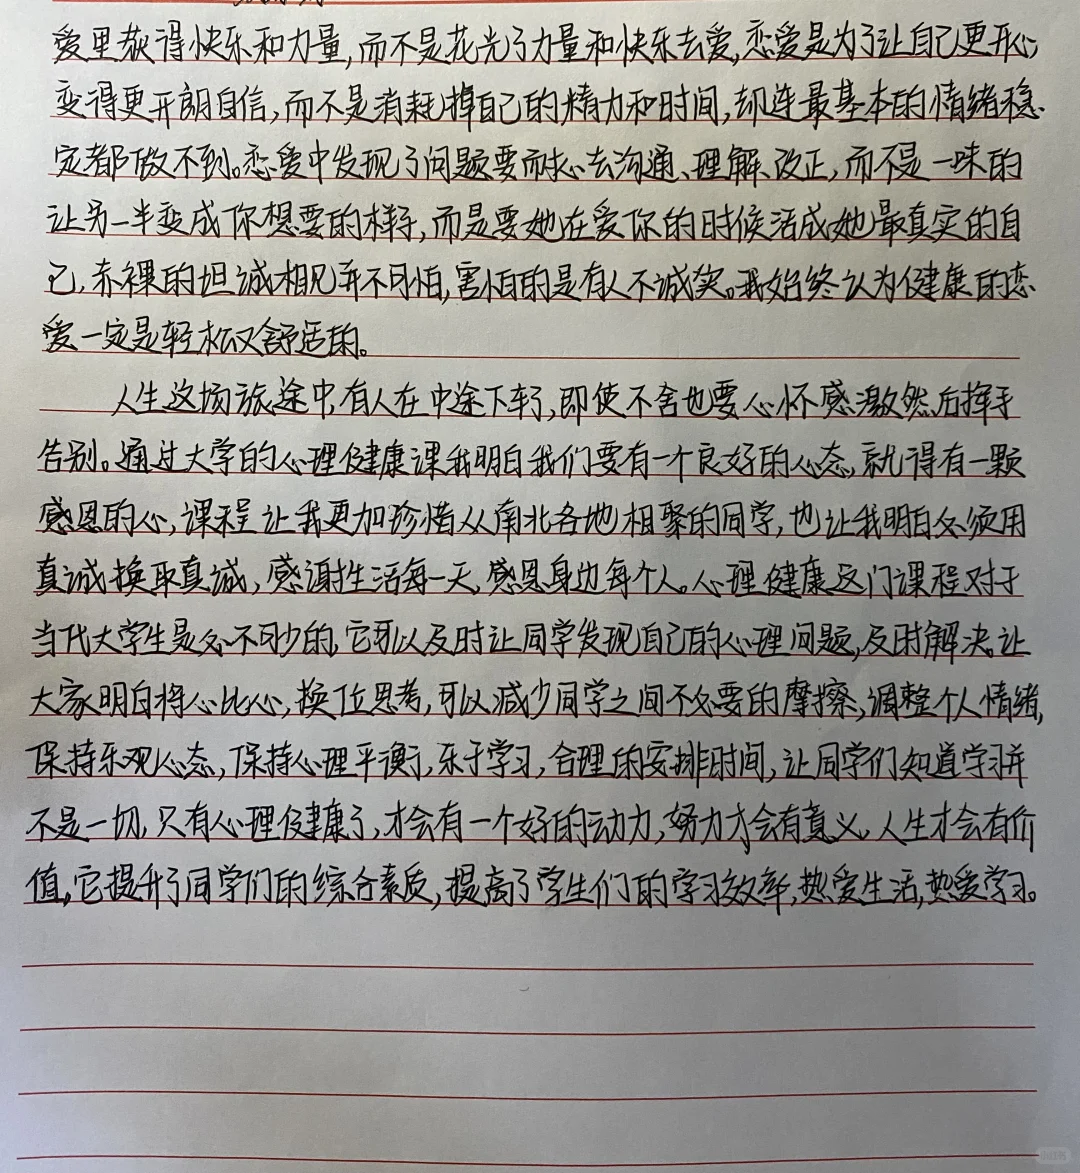 爱里获得快乐和力量,而不是花光了力量和快乐去爱,恋爱是为了让自己更开心,
变得更开朗自信,而不是消耗掉自己的精力和时间,却连最基本的情绪稳
定都做不到。恋爱中发现了问题要耐心去沟通、理解、改正,而不是一味的
让另一半变成你想要的样子,而是要她在爱你的时候活成她最真实的自
己,赤裸的坦诚相见并不可怕,害怕的是有人不诚实。我始终认为健康的恋
爱一定是轻松又舒适的。
人生这场旅途中,有人在中途下车了,即使不舍也要心怀感激然后挥手
告别。通过大学的心理健康课我明白我们要有一个良好的心态,就得有一颗
感恩的心,课程让我更加珍惜从南北各地相聚的同学,也让我明白必须用
真诚换取真诚,感谢生活每一天,感恩身边每个人。心理健康这门课程对于
当代大学生是必不可少的,它可以及时让同学发现自己的心理问题,及时解决。让
大家明白将心比心,换位思考,可以减少同学之间不必要的摩擦,调整个人情绪,
保持乐观心态,保持心理平衡,乐于学习,合理的安排时间,让同学们知道学习并
不是一切,只有心理健康了,才会有一个好的动力,努力才会有意义,人生才会有价
值,它提升了同学们的综合素质,提高了学生们的学习效率,热爱生活,热爱学习。
小红书